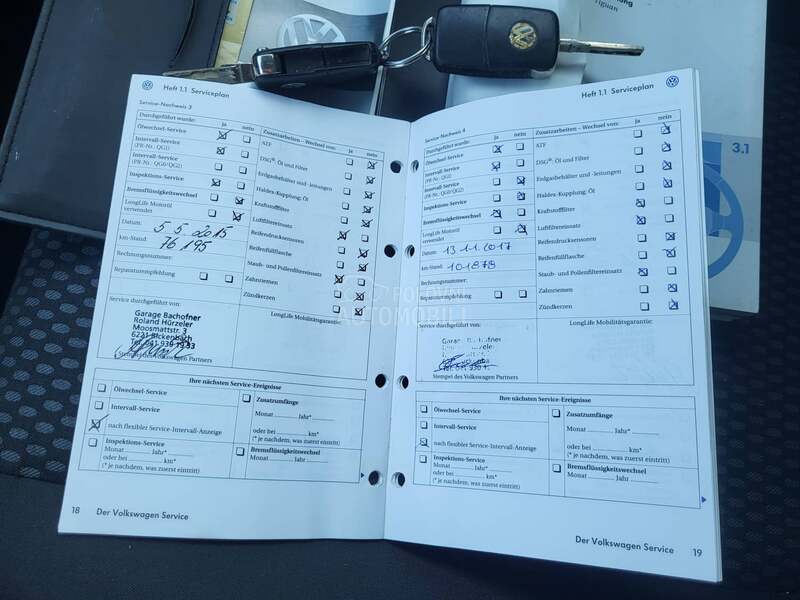 Tiguan
3.1
Heft 1.1 Serviceplan
Service-Nachweis 3
Durchgeführt wurde: ja nein
Ölwechsel-Service
Intervall-Service
(PR-Nr.: QG1)
Intervall-Service
(PR-Nr.: QG0/QG2)
Inspektions-Service
Bremsflüssigkeitswechsel
LongLife Motoröl
verwendet
Datum: 5.5.2015
km-Stand: 76,195
Rechnungsnummer:
Reparaturempfehlung
Zusatzarbeiten – Wechsel von: ja nein
ATF
DSG®: Öl und Filter
Erdgasbehälter und -leitungen
Haldex-Kupplung: Öl
Kraftstofffilter
Luftfiltereinsatz
Reifendrucksensoren
Reifenfüllflasche
Staub- und Pollenfiltereinsatz
Zahnriemen
Zündkerzen
Service durchgeführt von:
Garage Bachofner
Roland Hürzeler
Moosmattstr. 3
6221 Rickenbach
Tel. 041 930 19 33
Stempel des Volkswagen Partners
LongLife Mobilitätsgarantie:
Ihre nächsten Service-Ereignisse
Ölwechsel-Service
Intervall-Service
nach flexibler Service-Intervall-Anzeige
Inspektions-Service
Monat Jahr*
oder bei km*
(* je nachdem, was zuerst eintritt)
Zusatzumfänge
Monat Jahr*
oder bei km*
(* je nachdem, was zuerst eintritt)
Bremsflüssigkeitswechsel
Monat Jahr
18 Der Volkswagen Service
Heft 1.1 Serviceplan
Service-Nachweis 4
Durchgeführt wurde: ja nein
Ölwechsel-Service
Intervall-Service
(PR-Nr.: QG1)
Intervall-Service
(PR-Nr.: QG0/QG2)
Inspektions-Service
Bremsflüssigkeitswechsel
LongLife Motoröl
verwendet
Datum: 13.1.2017
km-Stand: 101878
Rechnungsnummer:
Reparaturempfehlung
Zusatzarbeiten – Wechsel von: ja nein
ATF
DSG®: Öl und Filter
Erdgasbehälter und -leitungen
Haldex-Kupplung: Öl
Kraftstofffilter
Luftfiltereinsatz
Reifendrucksensoren
Reifenfüllflasche
Staub- und Pollenfiltereinsatz
Zahnriemen
Zündkerzen
Service durchgeführt von:
Stempel des Volkswagen Partners
LongLife Mobilitätsgarantie:
Ihre nächsten Service-Ereignisse
Ölwechsel-Service
Intervall-Service
nach flexibler Service-Intervall-Anzeige
Inspektions-Service
Monat Jahr*
oder bei km*
(* je nachdem, was zuerst eintritt)
Zusatzumfänge
Monat Jahr*
oder bei km*
(* je nachdem, was zuerst eintritt)
Bremsflüssigkeitswechsel
Monat Jahr
Der Volkswagen Service 19
AUTOMOBILI